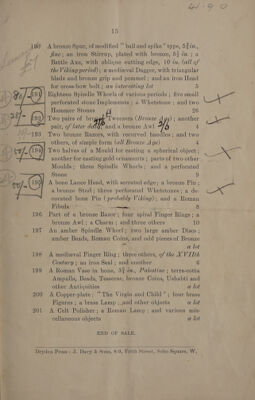 41-9 0
15
190 A bronze Spur, of modified "ball and spike" type, 5¾ in.,
fine; an iron Stirrup, plated with bronze, 5½ in.; a
Battle Axe, with oblique cutting edge, 10 in. (all of
the Viking period); a mediæval Dagger, with triangular
blade and bronze grip and pommel; and an iron Head
for cross-bow bolt; an interesting lot 5
191 Eighteen Spindle Whorls of various periods; five small
perforated stone Implements; a Whetstone; and two
Hammer Stones 26
192 Two pairs of bronze Tweezers (Bronze Age); another
pair, of later date; and a bronze 4
193 Two bronze Razors, with recurved handles; and two
others, of simple form (all Bronze Age) 4
194 Two halves of a Mould for casting a spherical object;
another for casting gold ornaments; parts of two other
Moulds; three Spindle Whorls; and a perforated
Stone 9
195 A bone Lance Head, with serrated edge; a bronze Pin;
a bronze Stud; three perforated Whetstones; a de-
corated bone Pin (probably Viking); and a Roman
Fibula 8
196 Part of a bronze Razor; four spiral Finger Rings; a
bronze Awl; a Charm; and three others 10
197 An amber Spindle Whorl; two large amber Discs;
amber Beads, Roman Coins, and odd pieces of Bronze
a lot
198 A mediæval Finger Ring; three others, of the XVIIth
Century; an iron Seal; and another 6
199 A Roman Vase in bone, 3¾ in., Palestine; terra-cotta
Ampulla, Beads, Tesserae, bronze Coins, Ushabti and
other Antiquities a lot
200 A Copper-plate: "The Virgin and Child"; four brass
Figures; a brass Lamp; and other objects a lot
201 A Celt Polisher; a Roman Lamp; and various mis-
cellaneous objects a lot
END OF SALE.
Dryden Press: J. Davy & Sons, 8-9, Frith Street, Soho Square, W.